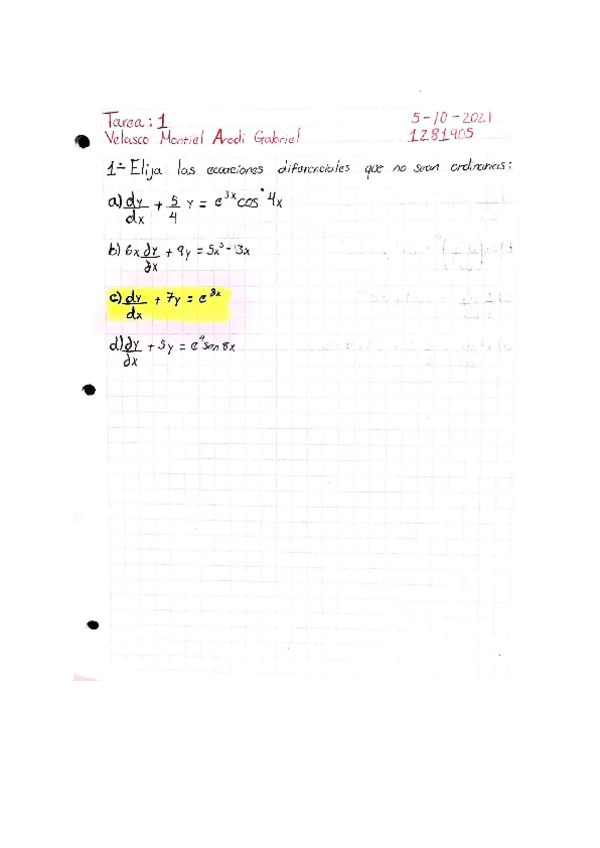 Tarea: 1 5-10-2021
Velasco Montiel Arodi Gabriel 1281905
1.- Elija las ecuaciones diferenciales que no sean ordinarias:
a) dy/dx + 5/4 y = e^3x cos 4x
b) 6x ∂y/∂x + 9y = 5x³ - 13x
c) dy/dx + 7y = e^3x
d) ∂y/∂x + 5y = e^4 sen 8x